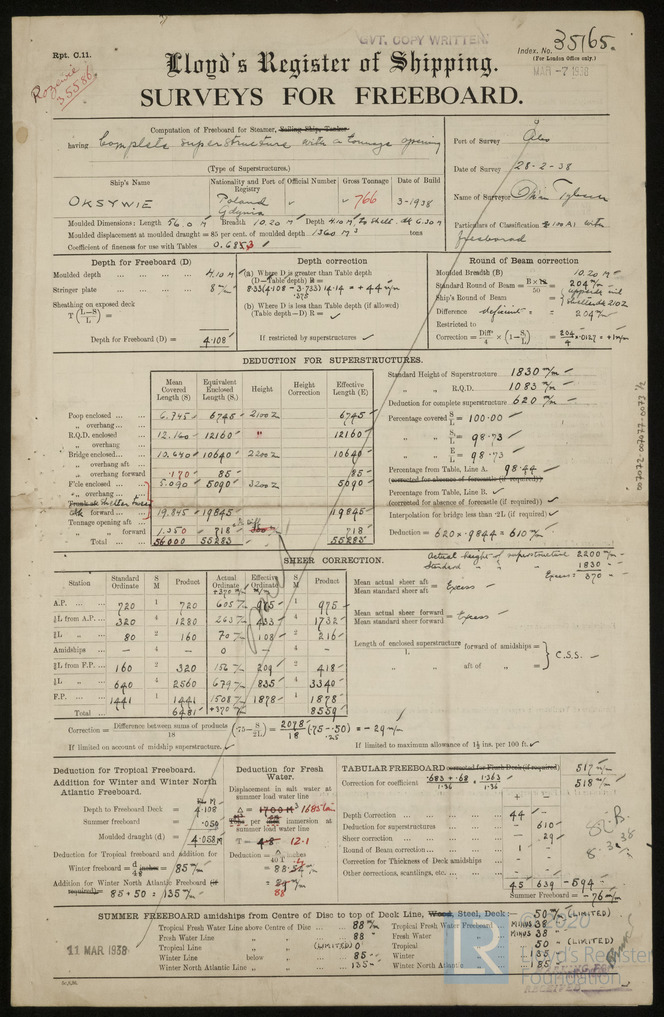 GVT. COPY WRITTEN.
Rpt. C.11.
Index. No. 35165.
(For London Office only.)
MAR -7 1938
Rozewie
35586
Lloyd's Register of Shipping.
SURVEYS FOR FREEBOARD.
Computation of Freeboard for Steamer, Sailing Ship, Tanker
having Complete superstructure with a tonnage opening
(Type of Superstructures.)
Port of Survey Oslo
Date of Survey 28-2-38
Name of Surveyor
Particulars of Classification 100 A1 with
freeboard
Ship's Name
Nationality and Port of Registry
Official Number
Gross Tonnage
Date of Build
OKSYWIE
Poland
Gdynia
" 766
3-1938
Moulded Dimensions: Length 56.0 M Breadth 10.20 M Depth 4.10 M To Shelt. dk 6.30 M
Moulded displacement at moulded draught = 85 per cent. of moulded depth 1360 M³ tons
Coefficient of fineness for use with Tables 0.683
Depth for Freeboard (D)
Moulded depth 4.10 M
Stringer plate 8 m/m
Sheathing on exposed deck
T (L-S/L) =
Depth for Freeboard (D) = 4.108
Depth correction
(a) Where D is greater than Table depth
(D—Table depth) R =
8.33 (4.108 - 3.733) 14.14 = +44 m/m
.375
(b) Where D is less than Table depth (if allowed)
(Table depth—D) R =
If restricted by superstructures
Round of Beam correction
Moulded Breadth (B) 10.20 M
Standard Round of Beam = B×12/50 = 204 m/m
Ship's Round of Beam =
Difference deficient = 204 m/m
Restricted to
Correction = Diff/4 × (1-S/L) = 204/4 × .0127 = +1 m/m
DEDUCTION FOR SUPERSTRUCTURES.
Mean Covered Length (S.)
Equivalent Enclosed Length (S.)
Height
Height Correction
Effective Length (E)
Poop enclosed 6.745 6745 2100 6745
" overhang
R.Q.D. enclosed 12.160 12160 " 12160
" overhang
Bridge enclosed 10.640 10640 2200 10640
" overhang aft
" overhang forward .170 85 85
F'cle enclosed 5.090 5090 3200 5090
" overhang
forward 19.845 19845 19845
Tonnage opening aft
" " forward 1.350 718 718
Total 56000 55283 55283
Standard Height of Superstructure 1830 m/m
" " R.Q.D. 1083 m/m
Deduction for complete superstructure 620 m/m
Percentage covered S/L = 100.00
" " S₁/L = 98.73
" " E/L = 98.73
Percentage from Table, Line A. 98.44
(corrected for absence of forecastle (if required))
Percentage from Table, Line B.
(corrected for absence of forecastle (if required))
Interpolation for bridge less than ·2L (if required)
Deduction = 620 × .9844 = 610 m/m
Actual height of superstructure 2200 m/m
Standard " " " 1830
Excess = 370 "
SHEER CORRECTION.
Station
Standard Ordinate
S M
Product
Actual Ordinate
+370 m/m
Effective Ordinate
S M
Product
A.P. 720 1 720 605 975 1 975
⅙L from A.P. 320 4 1280 263 433 4 1732
⅓L " 80 2 160 70 108 2 216
Amidships — 4 — 0 — 4 —
⅓L from F.P. 160 2 320 156 209 2 418
⅙L " 640 4 2560 679 835 4 3340
F.P. 1441 1 1441 1508 1878 1 1878
Total 6481 +370 8559
Mean actual sheer aft / Mean standard sheer aft = Excess
Mean actual sheer forward / Mean standard sheer forward = Excess
Length of enclosed superstructure / L forward of amidships =
" " aft of " =
C.S.S.
Correction = Difference between sums of products/18 (·75 - S/2L) = 2078/18 (.75 - .50) = -29 m/m
.25
If limited on account of midship superstructure.
If limited to maximum allowance of 1½ ins. per 100 ft.
Deduction for Tropical Freeboard.
Addition for Winter and Winter North Atlantic Freeboard.
Depth to Freeboard Deck = 4.108
Summer freeboard = .050
Moulded draught (d) = 4.058 M
Deduction for Tropical freeboard and addition for
Winter freeboard = d/48 inches = 85 m/m
Addition for Winter North Atlantic Freeboard (if required) = 85 + 50 = 135 m/m
Deduction for Fresh Water.
Displacement in salt water at summer load water line
Δ = 1700 M³ 1685
immersion at summer load water line
T = 12.1
88
TABULAR FREEBOARD corrected for Flush Deck (if required) 517 m/m
Correction for coefficient .683 + .68/1.36 = 1.363/1.36 518 m/m
+ —
Depth Correction 44 —
Deduction for superstructures — 610
Sheer correction — 29
Round of Beam correction 1 —
Correction for Thickness of Deck amidships — —
Other corrections, scantlings, etc.
45 639 -594
Summer Freeboard = -76 m/m
SUMMER FREEBOARD amidships from Centre of Disc to top of Deck Line, Wood, Steel, Deck:— 50 m/m (LIMITED)
Tropical Fresh Water Line above Centre of Disc 88 m/m
Fresh Water Line " " 88 "
Tropical Line " " (LIMITED) 0
Winter Line below " 85
Winter North Atlantic Line " " 135
Tropical Fresh Water Freeboard MINUS 38
Fresh Water " MINUS 38
Tropical " 50 (LIMITED)
Winter " 135
Winter North Atlantic " 185
11 MAR 1938
© 2020
LR
Lloyd's Register
Foundation
RECEIVED
007072-007077-0073 1/2